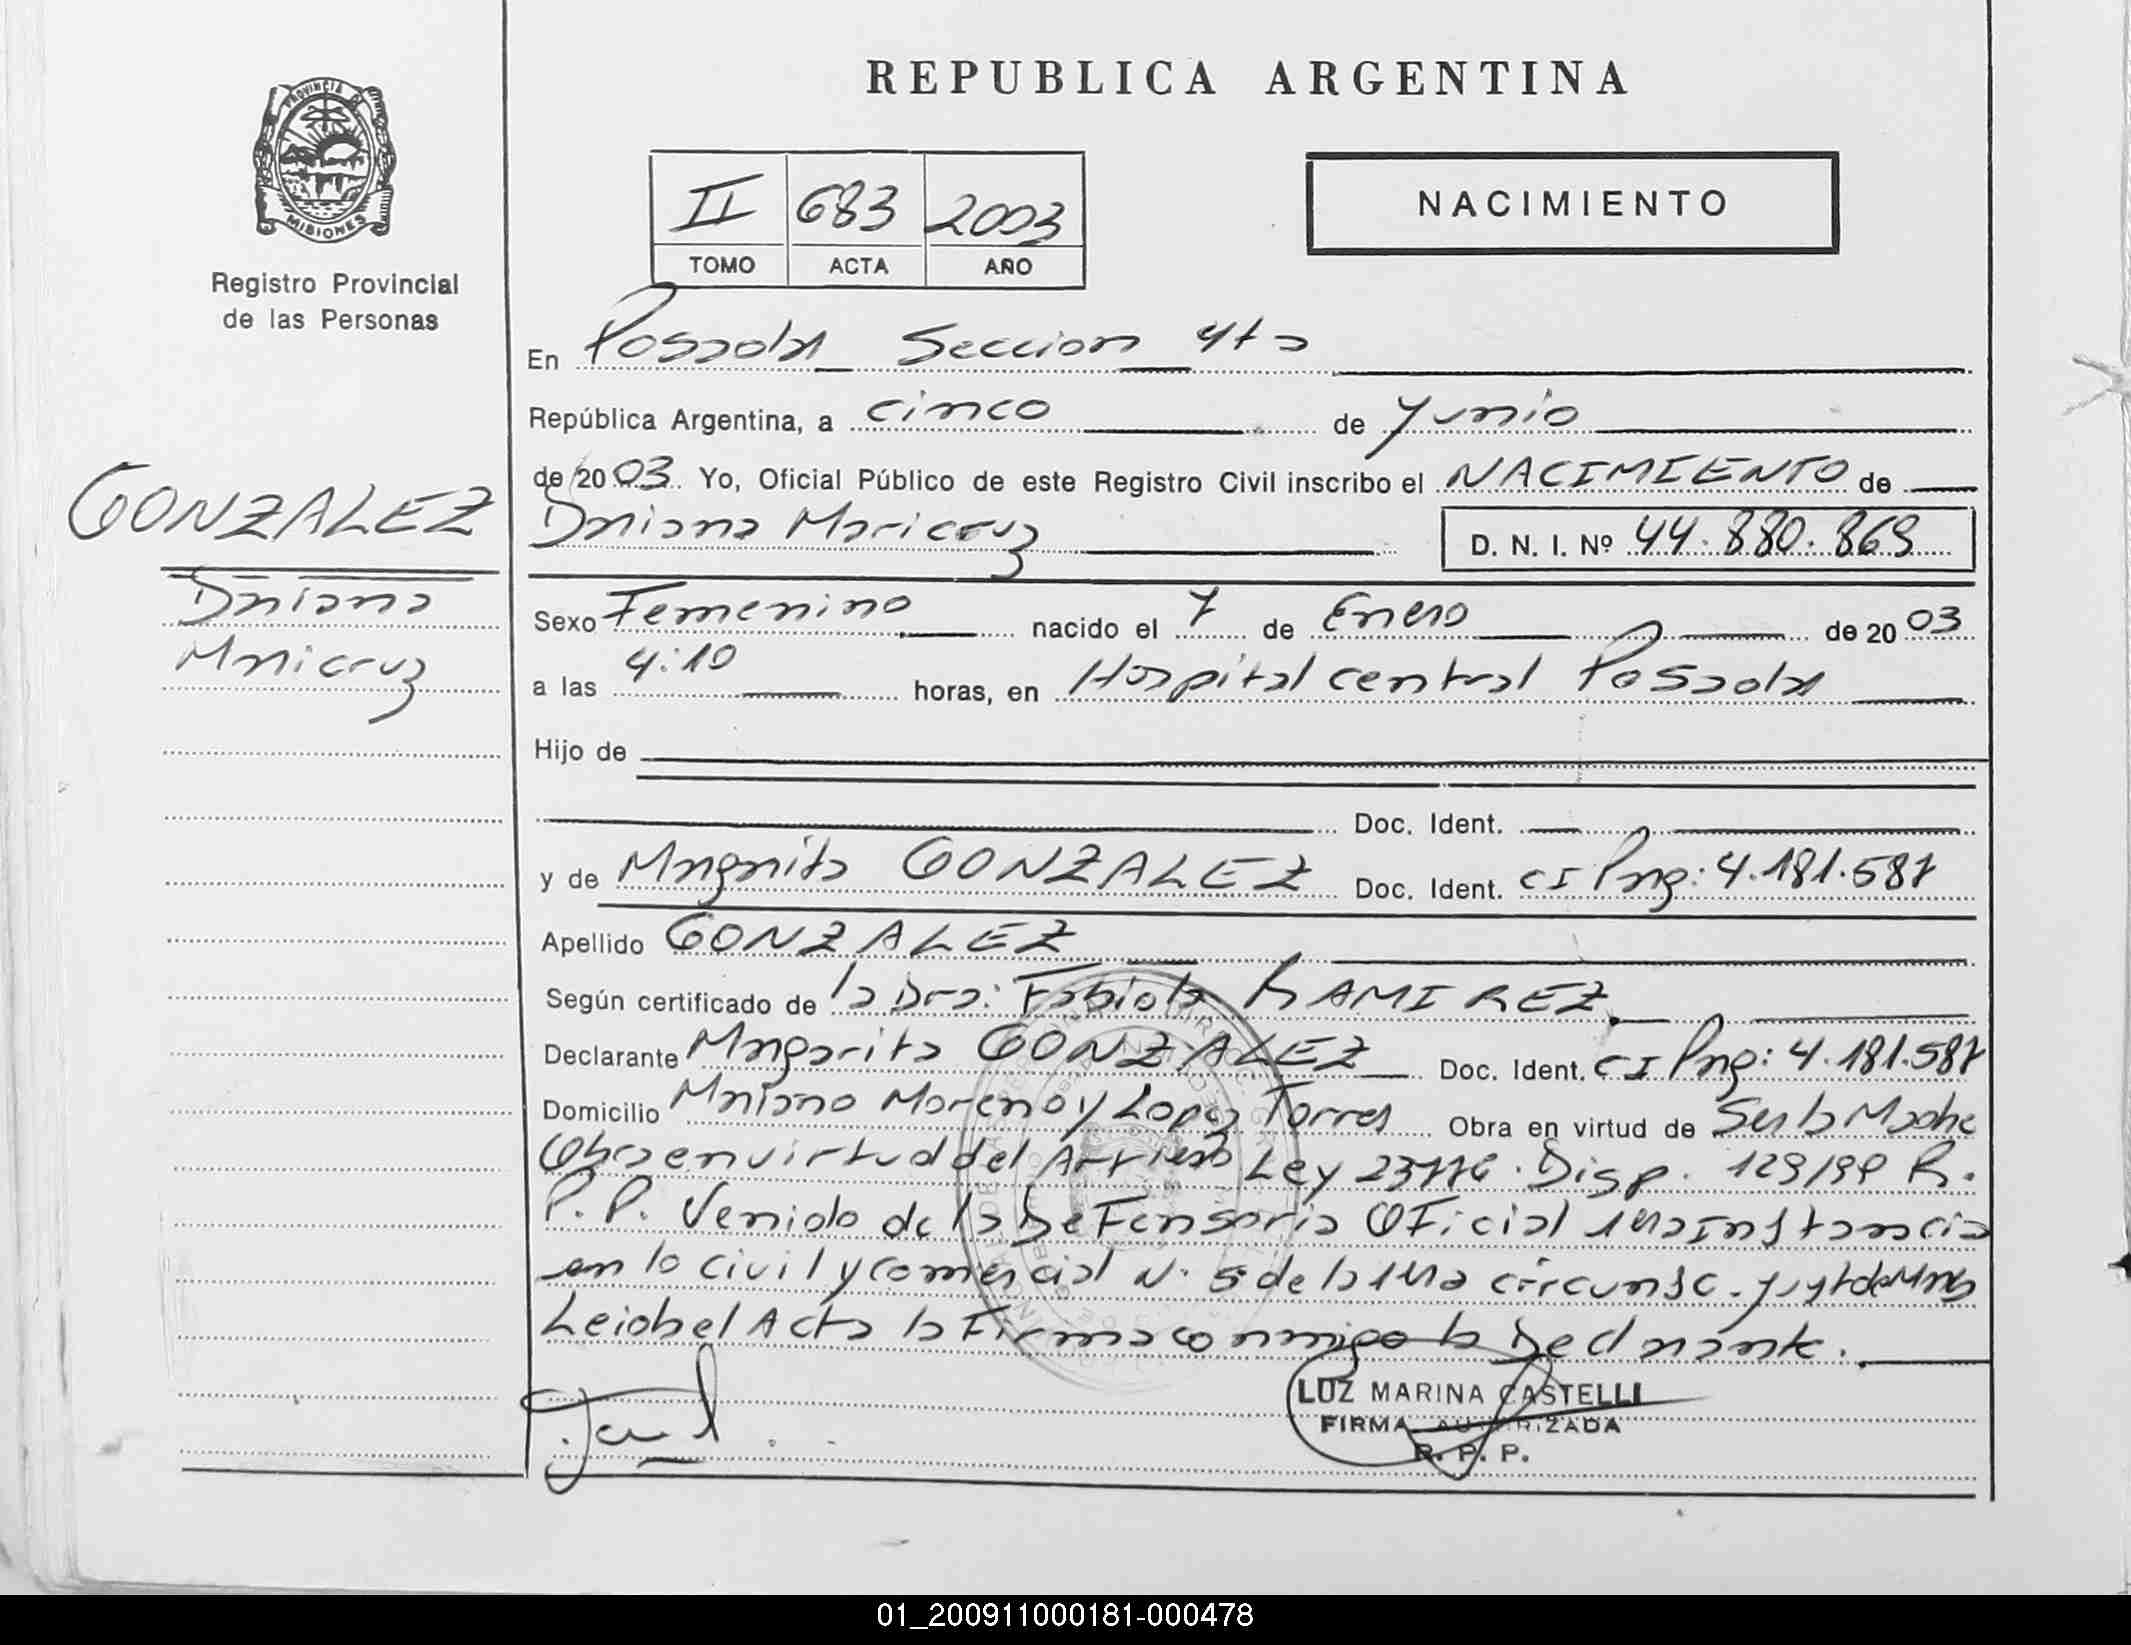 REPUBLICA ARGENTINA
PROVINCIA DE
MISIONES
Registro Provincial
de las Personas
II 683 2003
TOMO ACTA AÑO
NACIMIENTO
En Posadas Seccion 4ta
República Argentina, a cinco de Junio
de 2003 Yo, Oficial Público de este Registro Civil inscribo el NACIMIENTO de
GONZALEZ
Daiana Maricruz D. N. I. Nº 44.880.869
Daiana
Maricruz
Sexo Femenino nacido el 7 de Enero de 2003
a las 4:10 horas, en Hospital central Posadas
Hijo de
Doc. Ident.
y de Margarita GONZALEZ Doc. Ident. CI Prg: 4.181.587
Apellido GONZALEZ
Según certificado de la Dra: Fabiola RAMIREZ
Declarante Margarita GONZALEZ Doc. Ident. CI Prg: 4.181.587
Domicilio Mariano Moreno y Lopez Torres Obra en virtud de Ser la Madre
Obra en virtud del Art Ley Disp. 129/99 R.
P.P. Venido de la Defensoria Oficial 1era Instancia
en lo civil y comercial N. 5 de la 1era circunsc.
Leida el Acta la Firma conmigo la Declarante.
LUZ MARINA CASTELLI
FIRMA AUTORIZADA
R. P. P.
01_200911000181-000478